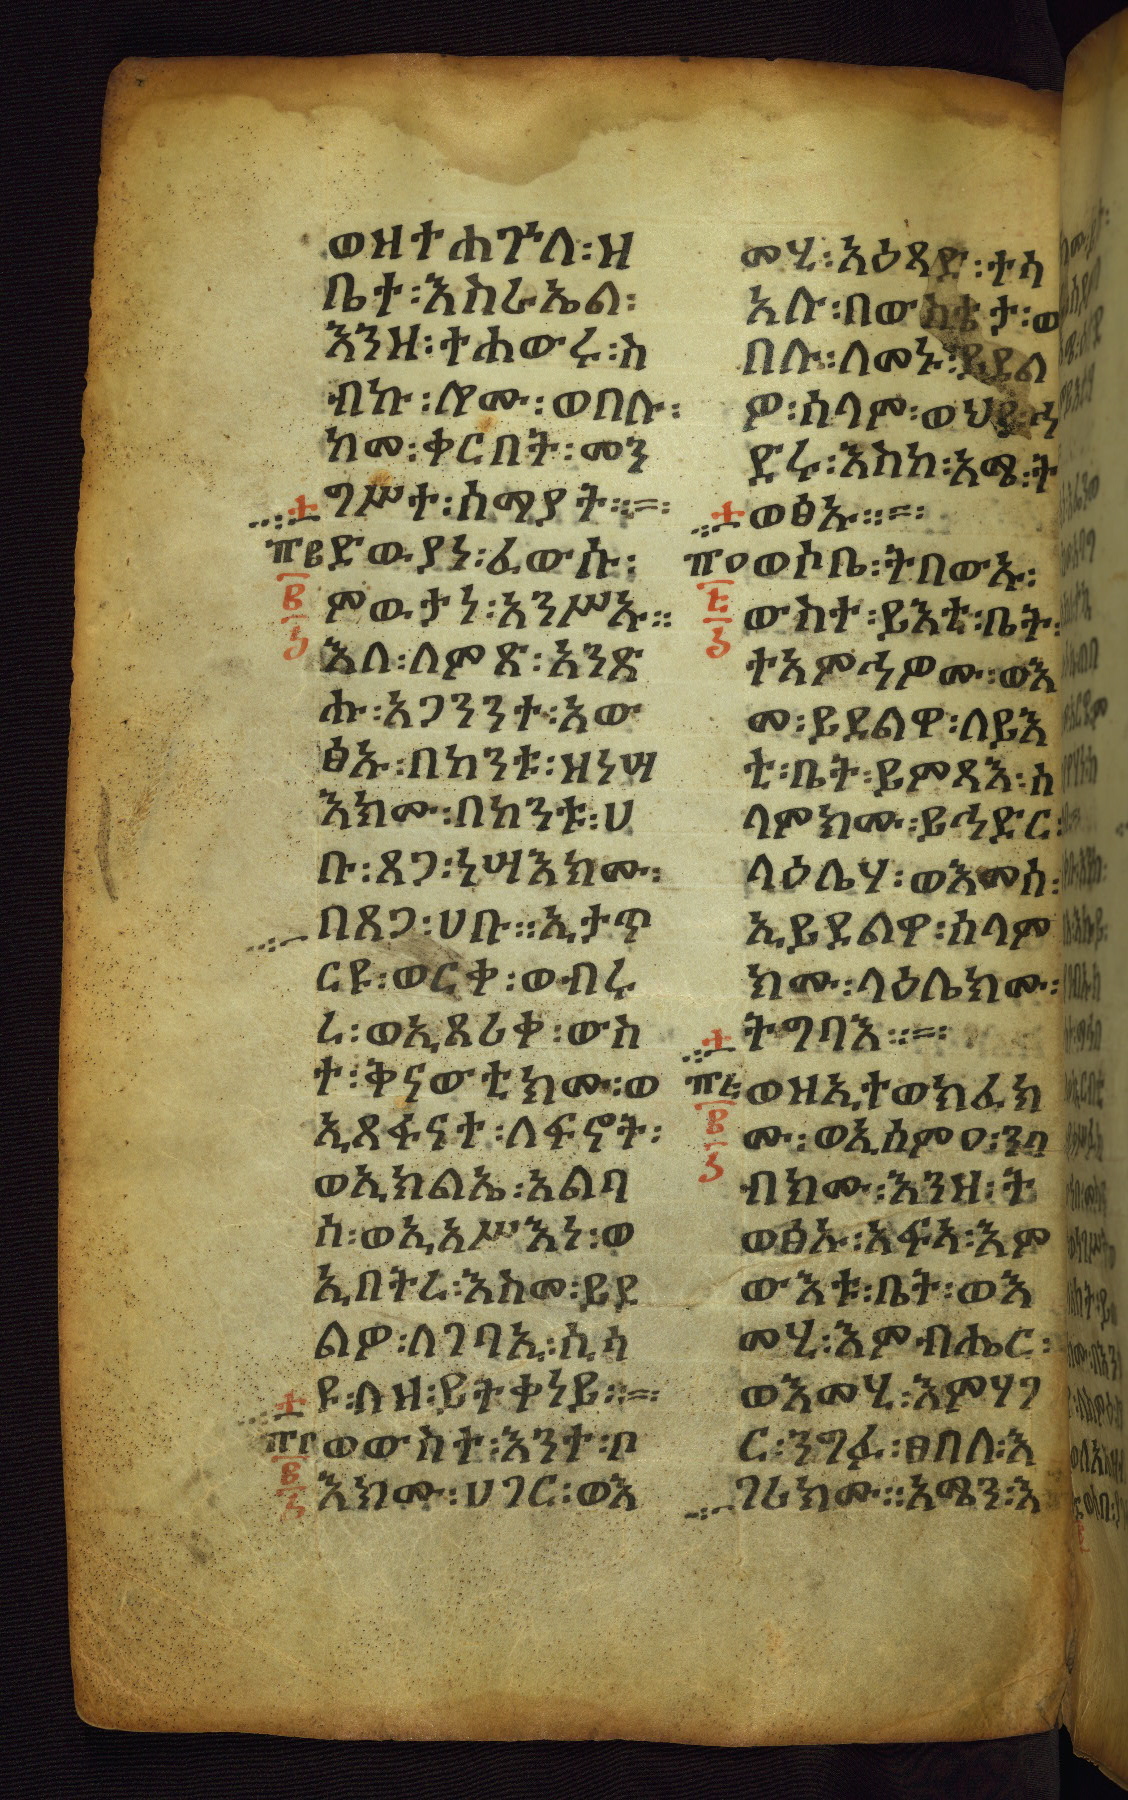 ወዘተሐጕለ፡ዘ
ቤተ፡እስራኤል፡
እንዘ፡ተሐውሩ፡ስ
ብኩ፡ሎሙ፡ወበሉ፡
ከመ፡ቀርበት፡መን
ግሥተ፡ሰማያት፡፡=፡
፹፪ ድውያነ፡ፈውሱ፡
፪ ምውታነ፡አንሥኡ።
፭ እለ፡ለምጽ፡አንጽ
ሑ፡አጋንንተ፡አው
ፅኡ፡በከንቱ፡ዘነሣ
እክሙ፡በከንቱ፡ሀ
ቡ፡ጸጋ፡ነሣእክሙ፡
በጸጋ፡ሀቡ።ኢታጥ
ርዩ፡ወርቀ፡ወብሩ
ረ፡ወኢጸሪቀ፡ውስ
ተ፡ቅናውቲክሙ፡ወ
ኢጸፋናተ፡ለፍኖት፡
ወኢክልኤ፡አልባ
ሰ፡ወኢአሥእነ፡ወ
ኢበትረ፡እስመ፡ይደ
ልዎ፡ለገባኢ፡ሲሳ
ዩ፡ለዘ፡ይትቀነይ፡፡=፡
፹፫ ወውስተ፡እንተ፡ቦ
፪ እክሙ፡ሀገር፡ወእ
መሂ፡አዕጻድ፡ተሳ
አሉ፡በውስቴታ፡ወ
በሉ፡ለመኑ፡ይደል
ዎ፡ሰላም፡ወህየ፡ኅ
ድሩ፡እስከ፡አሜ፡ት
ወፅኡ፡፡=፡
፹፬ ወሶቤ፡ትበውኡ፡
፭ ውስተ፡ይእቲ፡ቤት፡
ተአምኅዎሙ፡ወእ
መ፡ይደልዋ፡ለይእ
ቲ፡ቤት፡ይምጻእ፡ሰ
ላምክሙ፡ይኅድር፡
ላዕሌሃ፡ወእመሰ፡
ኢይደልዋ፡ሰላም
ክሙ፡ላዕሌክሙ፡
ትግባእ፡፡=፡
፹፭ ወዘኢተወክፈክ
፪ ሙ፡ወኢሰምዐ፡ነገ
ብክሙ፡እንዘ፡ት
ወፅኡ፡አፍአ፡እም
ውእቱ፡ቤት፡ወእ
መሂ፡እምብሔር፡
ወእመሂ፡እምሃገ
ር፡ንግፉ፡ፀበለ፡እ
ገሪክሙ።አሜን፡እ